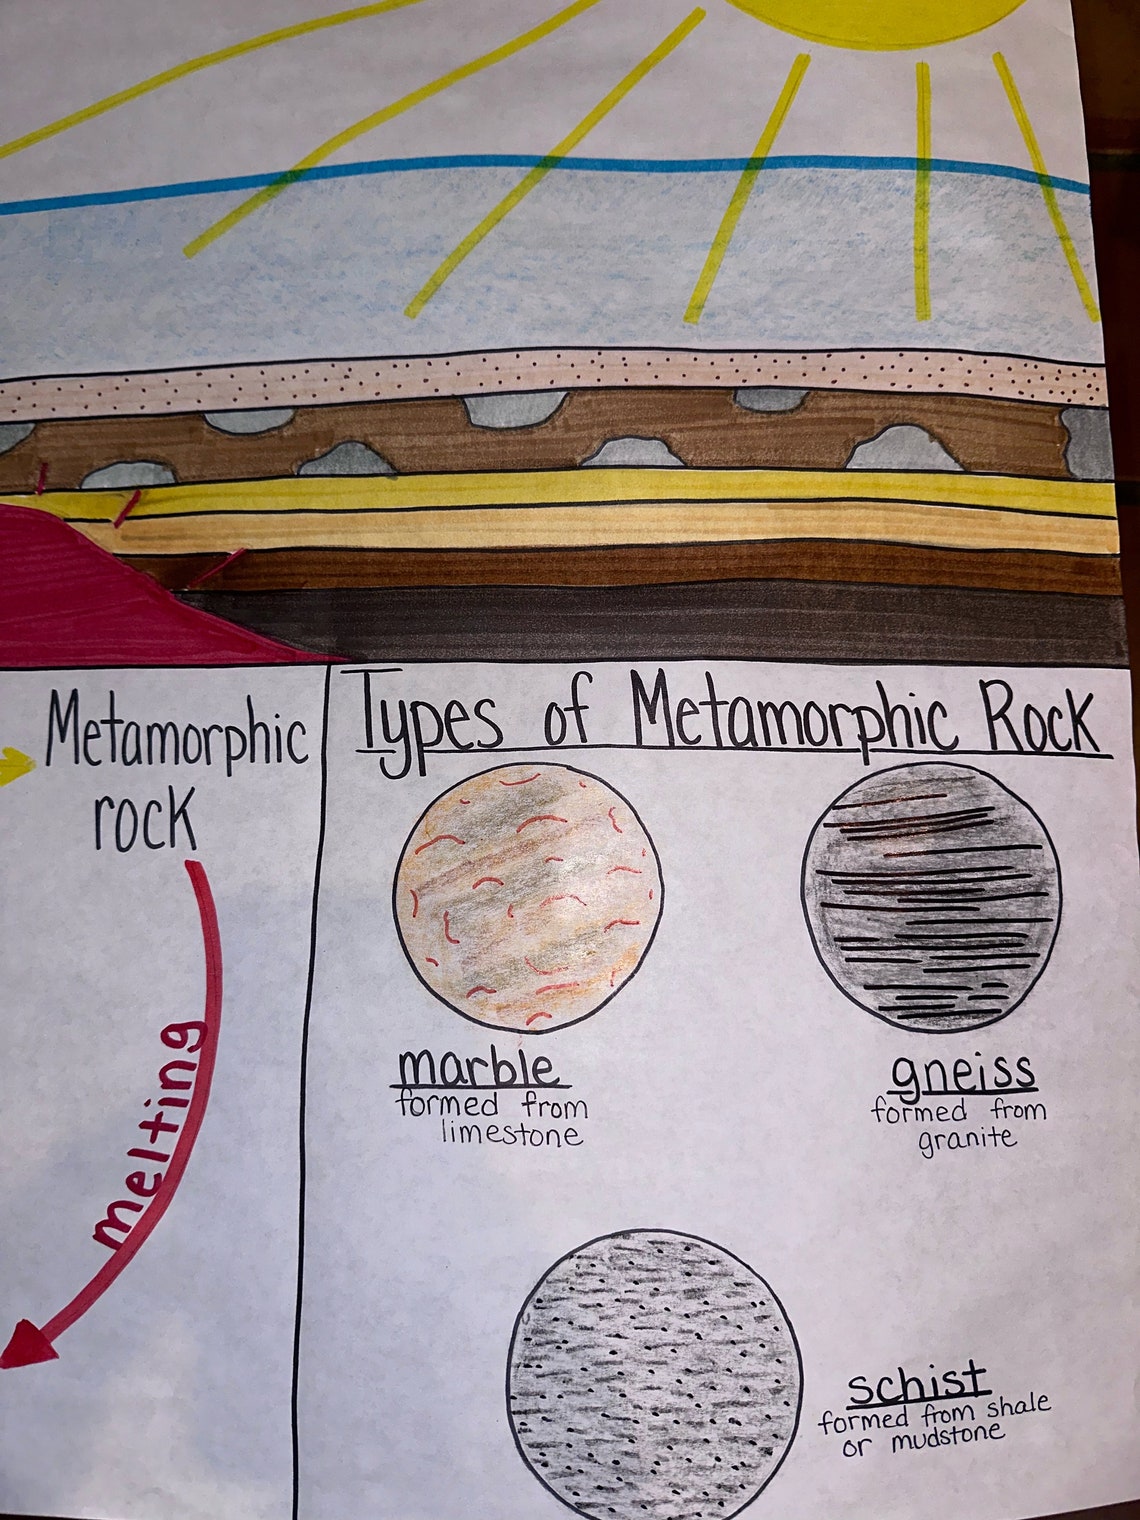 Metamorphic
rock
melting
Types of Metamorphic Rock
marble
formed from
limestone
gneiss
formed from
granite
schist
formed from shale
or mudstone